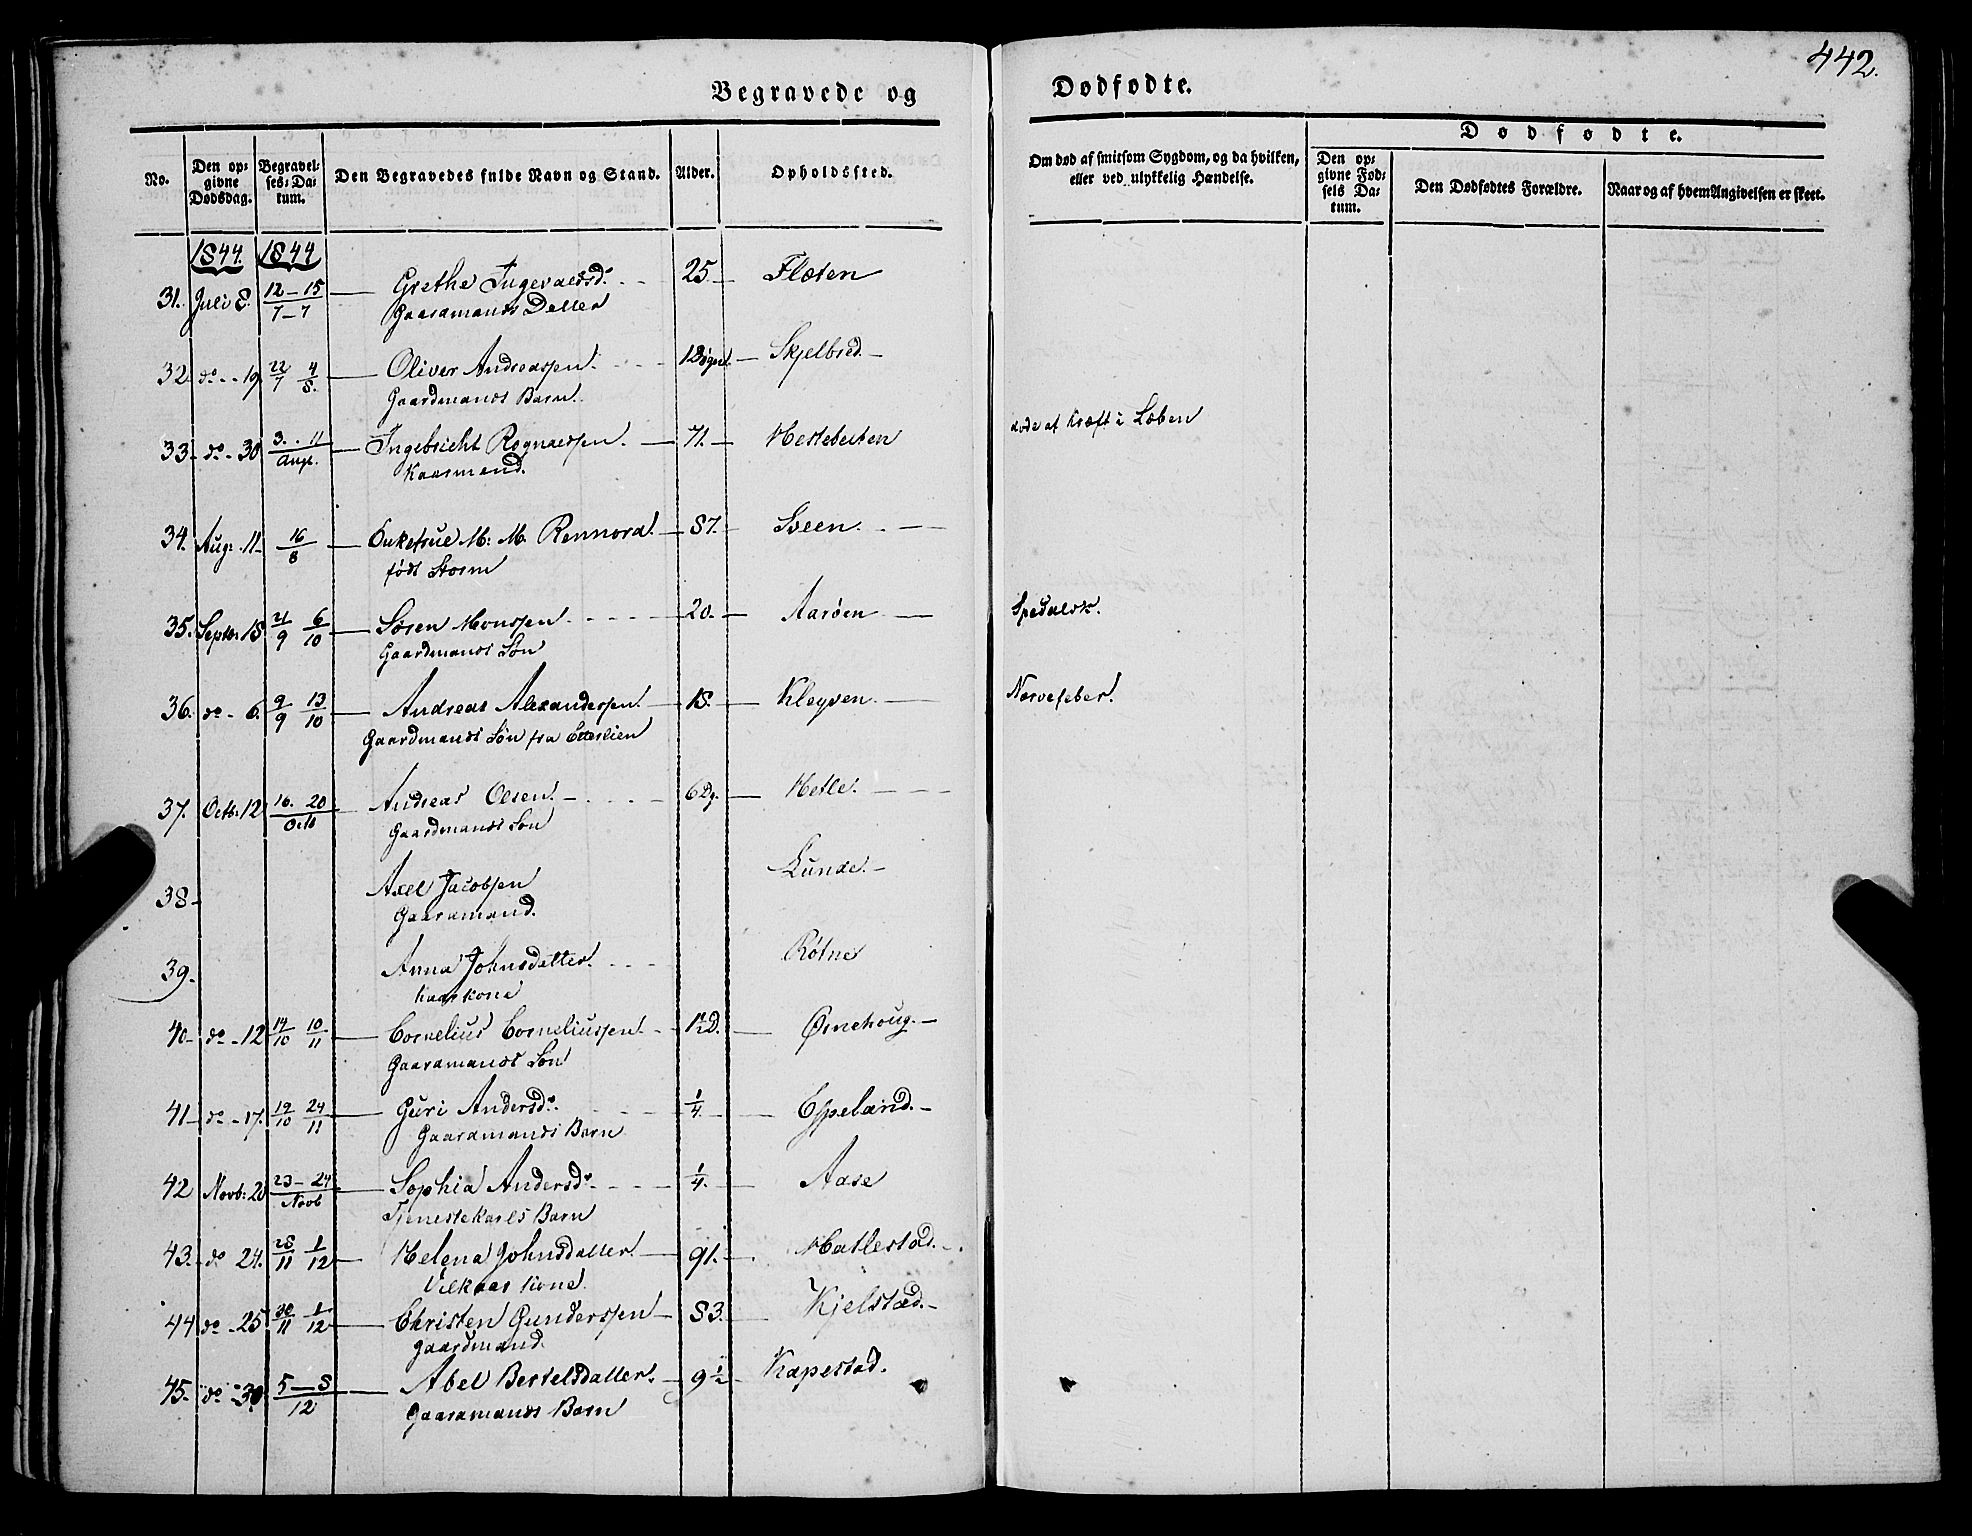 442.
Begravede og Dødfødte.
No.
Den opgivne Dødsdag.
Begravelses-Datum.
Den Begravedes fulde Navn og Stand.
Alder.
Opholdssted.
Om død af smitsom Sygdom, og da hvilken, eller ved ulykkelig Hændelse.
Dødfødte.
Den opgivne Fødsels Datum.
Den Dødfødtes Forældre.
Naar og af hvem Angivelsen er skeet.
1844. 1844
31. Juli 8. 12-15 / 7-7 Grethe Ingevaldsd. 25 Flöten
Gaardmands Datter
32. do 19. 22/7 4/8. Oliver Andreassen. 1 Døgn Skjelbred
Gaardmands Barn.
33 do 30 3. 11 / Aug. Ingebricht Rognaldsen. 71. Hestebeiten døde af Kræft i Læben
Kaarmand.
34. Aug: 11 16/8 Enkefrue M: M. Rennord. 87. Sveen.
født Storm
35. Septb: 15. 21/9 6/10 Søren Monssen 20. Aarøen Spedalsk.
Gaardmands Søn
36. do 6. 9/9 13/10 Andreas Alexandersen. 18. Kleyven. Nervefeber.
Gaardmands Søn fra Etterlien
37. Octb: 12 16. 20 / Octb Andreas Olsen. 6 Dg. Hetle.
Gaardmands Søn
38 Axel Jacobsen Lunde.
Gaardmand.
39. Anna Johnsdatter. Røtne
Kaarkone
40 do 12 14/10 10/11 Cornelius Corneliussen. 1½ D. Ørnehoug.
Gaardmands Søn
41 do 17. 19/10 24/11 Guri Andersd. 1/4 Espeland.
Gaardmands Barn
42 Novb: 20 23-24 / Novb Sophia Andersd. 1/4. Aase
Tjenestekarls Barn
43. do 24. 28/11 1/12 Helena Johnsdatter. 91. Hatlestad.
Vilkaars Kone.
44 do 25 30/11 1/12 Christen Gunderssen 83. Kjelstad.
Gaardmand.
45. do 30. 5-8 / 12 Abel Bertelsdatter. 9½ Kapestad.
Gaardmands Barn